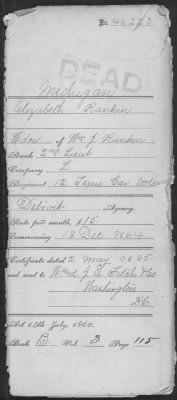 No. 46273
DEAD
Michigan
Elizabeth Rankin
Widow of Wm J. Rankin
Rank 2nd Lieut
Company L
Regiment 12 Tenn Cav Vols
Detroit Agency.
Rate per month, $15
Commencing 18 Dec 1864
Certificate dated 2 May 1865.
and sent to J. E. Fitch & Co
Washington
D.C.
Act 14th July, 1862.
Book B Vol. 3 Page 115